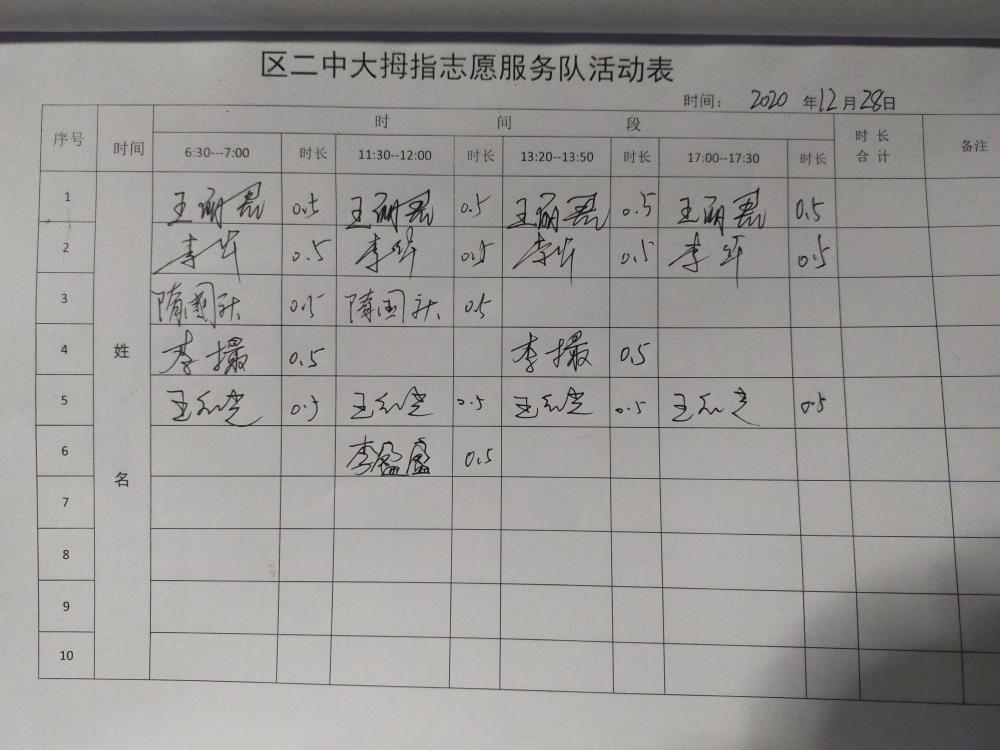 区二中大拇指志愿服务队活动表
时间： 2020 年12月28日
序号 时间 时间段 时长合计 备注
6:30---7:00 时长 11:30--12:00 时长 13:20--13:50 时长 17:00--17:30 时长
姓名
1 王丽君 0.5 王丽君 0.5 王丽君 0.5 王丽君 0.5
2 李华 0.5 李华 0.5 李华 0.5 李华 0.5
3 隋国跃 0.5 隋国跃 0.5
4 李撮 0.5 李撮 0.5
5 王 0.5 王 0.5 王 0.5 王 0.5
6 李盈盈 0.5
7
8
9
10